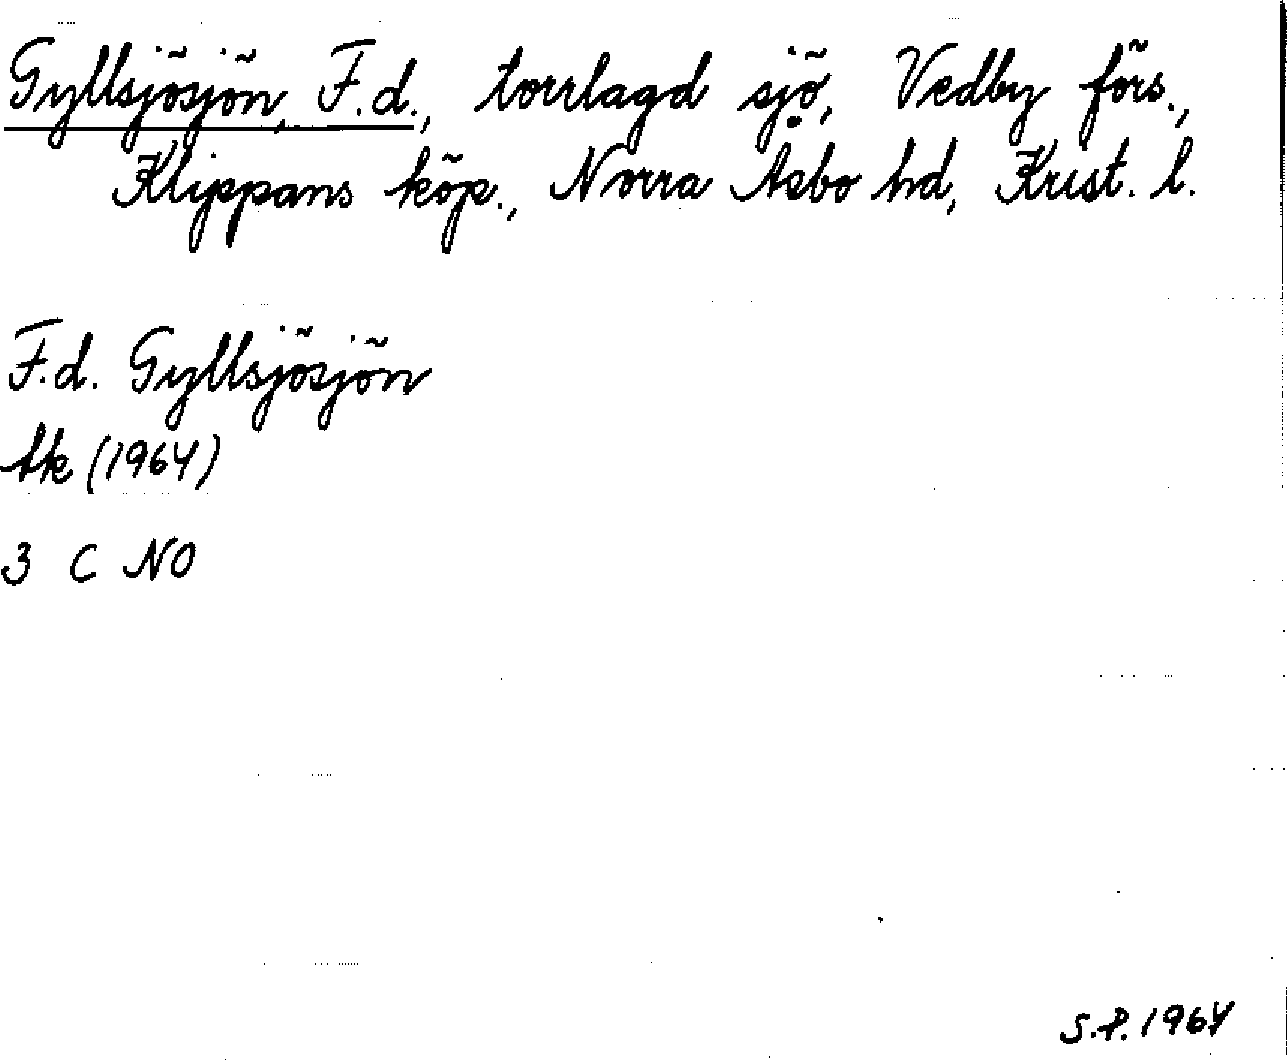 Gyllsjösjön, F.d., torrlagd sjö, Vedby förs.,
Klippans köp., Norra Åsbo hd, Krist. l.
F.d. Gyllsjösjön
tk (1964)
3 C NO
S.P. 1964